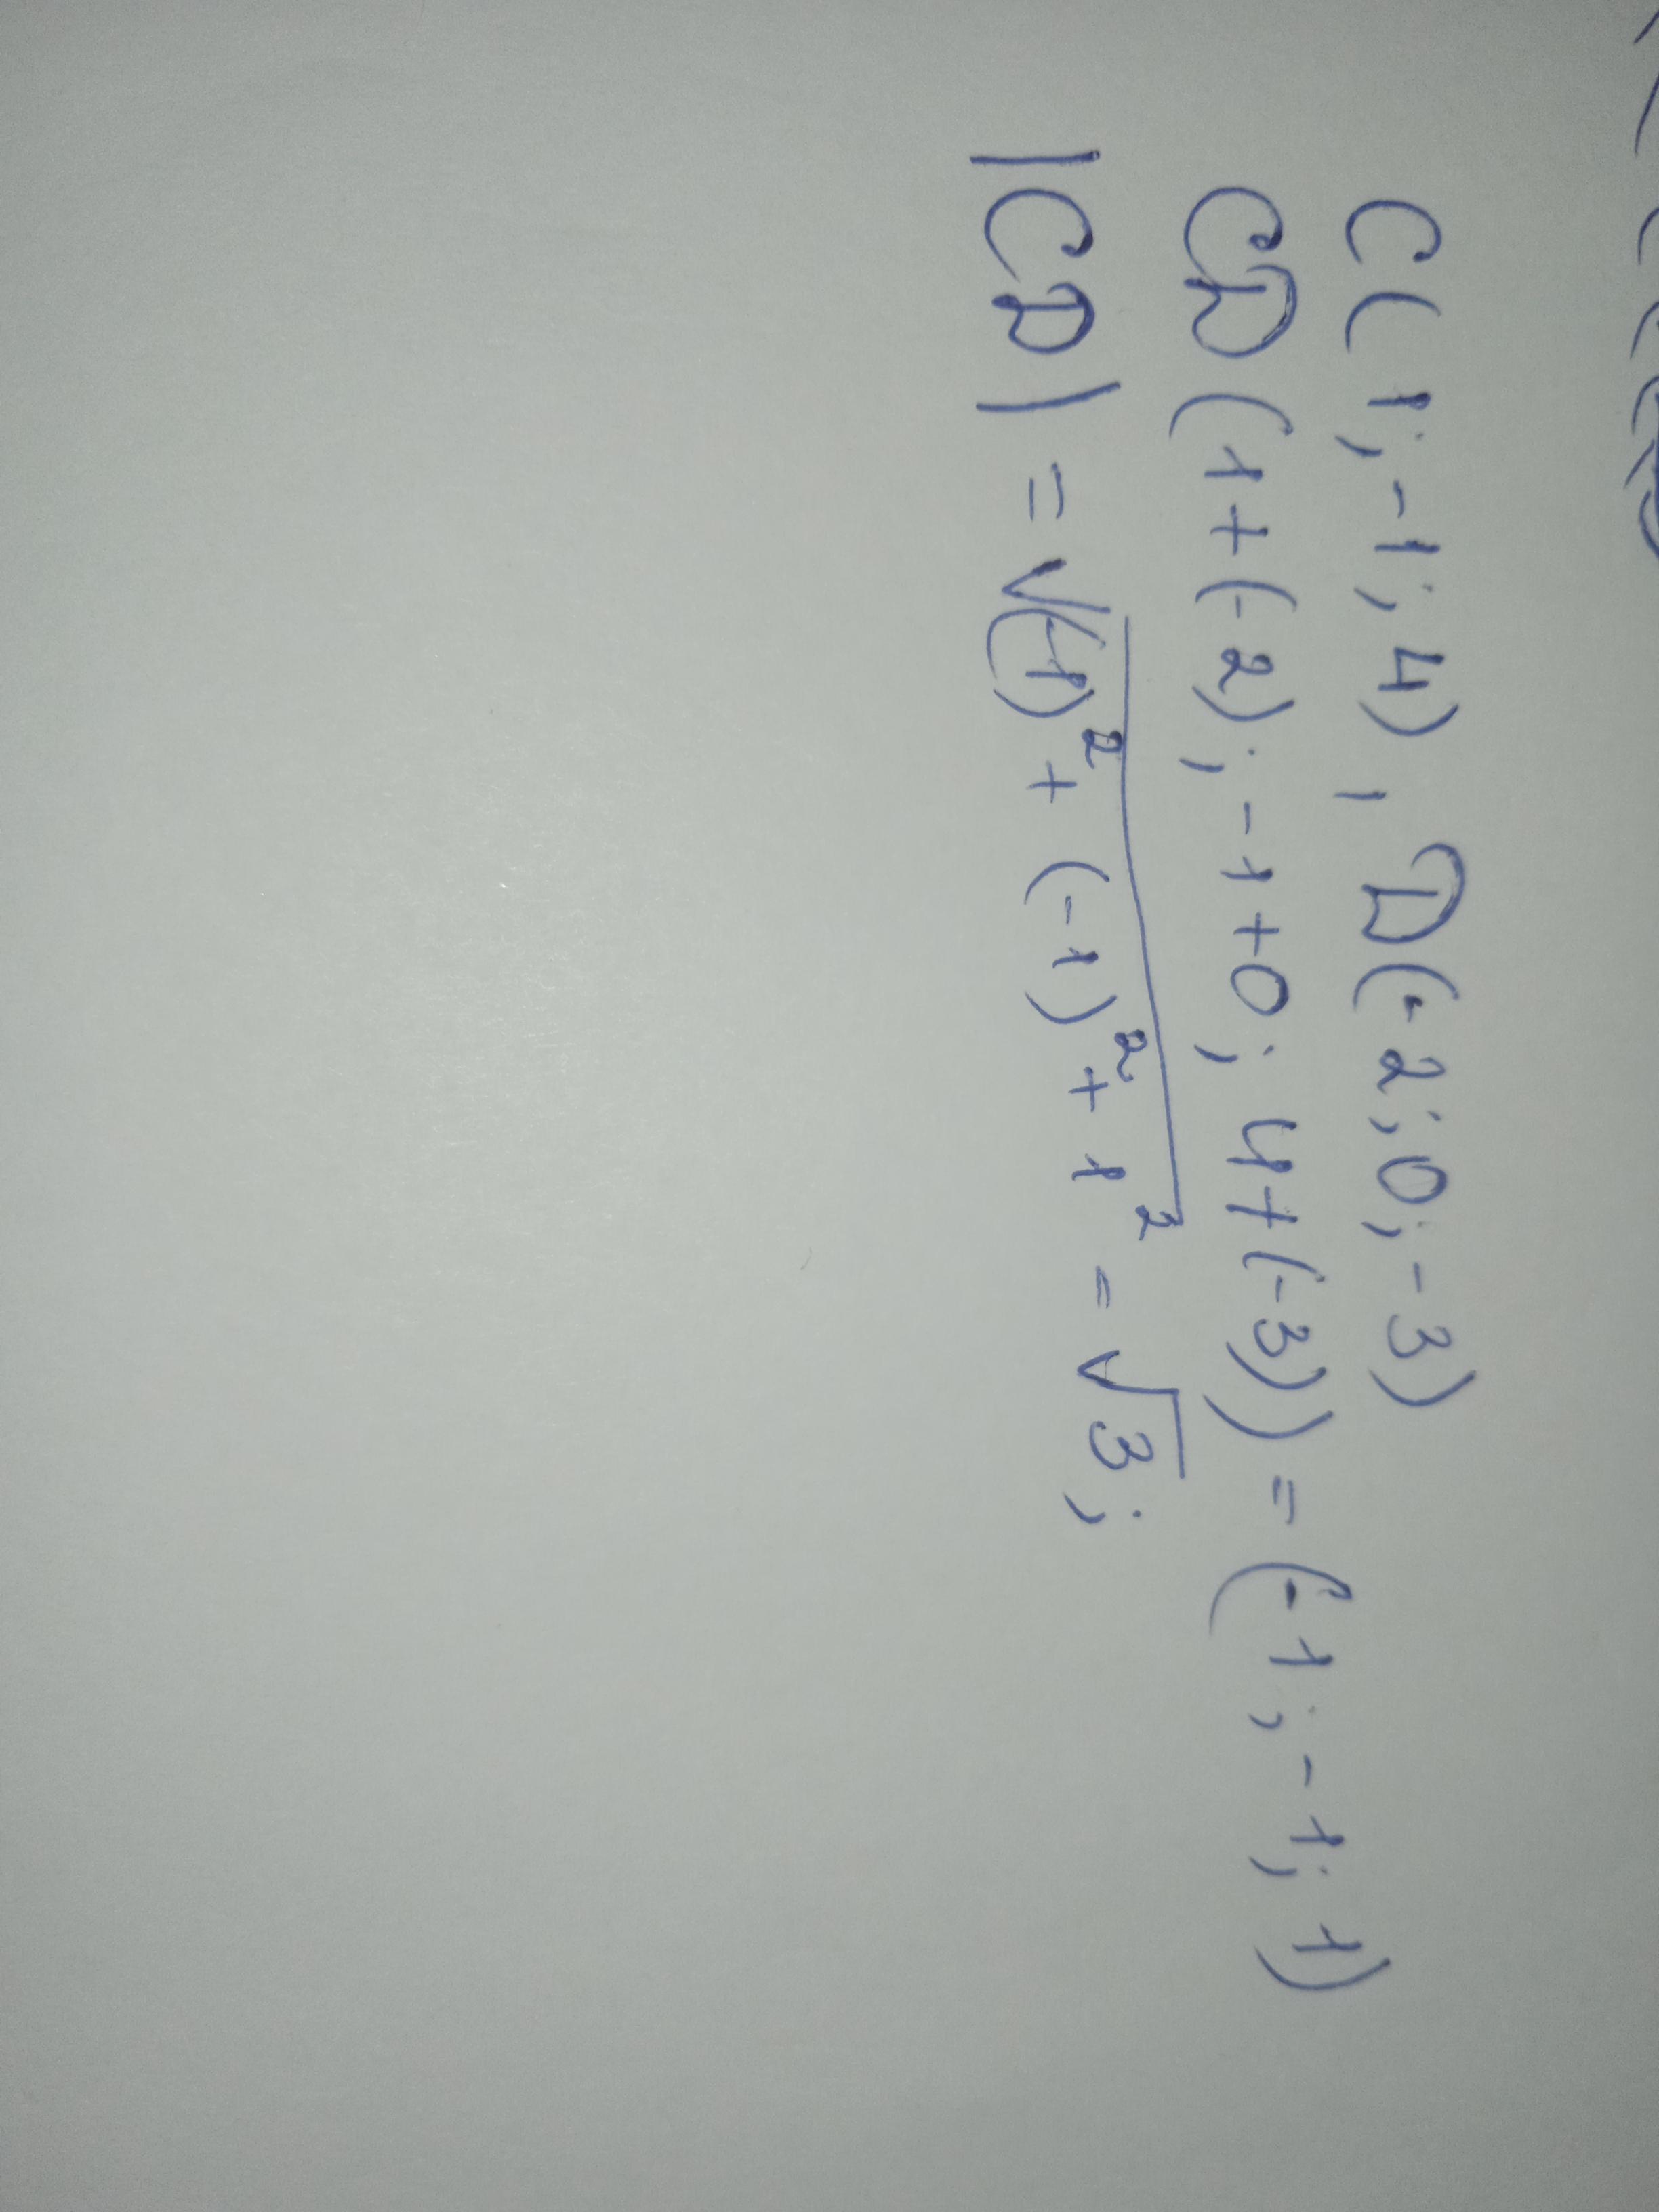 C(1;-1;4), D(-2;0;-3)
CD(1+(-2);-1+0;4+(-3))=(-1;-1;1)
|CD|=√((-1)²+(-1)²+1²)=√3;